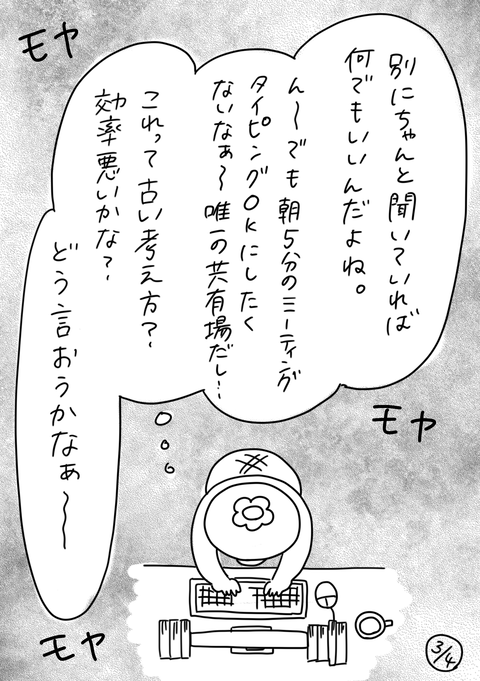 モヤ
別にちゃんと聞いていれば
何でもいいんだよね。
ん〜でも朝5分のミーティング
タイピングOKにしたく
ないなぁ〜唯一の共有場だし…
これって古い考え方?
効率悪いかな?
どう言おうかなぁ〜
モヤ
モヤ
3/4